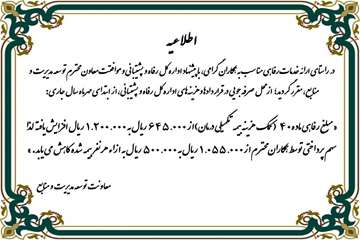 اطلاعیه
در راستای ارائه خدمات رفاهی مناسب به همکاران گرامی، با پیشنهاد اداره کل رفاه و پشتیبانی و موافقت معاون محترم توسعه مدیریت و
منابع، مقرر گردید: از محل صرفه جویی در قراردادها و هزینه های اداره کل رفاه و پشتیبانی، از ابتدای مهر ماه سال جاری:
« مبلغ رفاهی ماده ۴۰ (کمک هزینه بیمه تکمیلی درمان) از ۶۴۵.۰۰۰ ریال به ۱.۲۰۰.۰۰۰ ریال افزایش یافته لذا
سهم پرداختی توسط همکاران محترم از ۱.۰۵۵.۰۰۰ ریال به ۵۰۰.۰۰۰ ریال به ازاء هر نفر بیمه شده کاهش می یابد. »
معاونت توسعه مدیریت و منابع